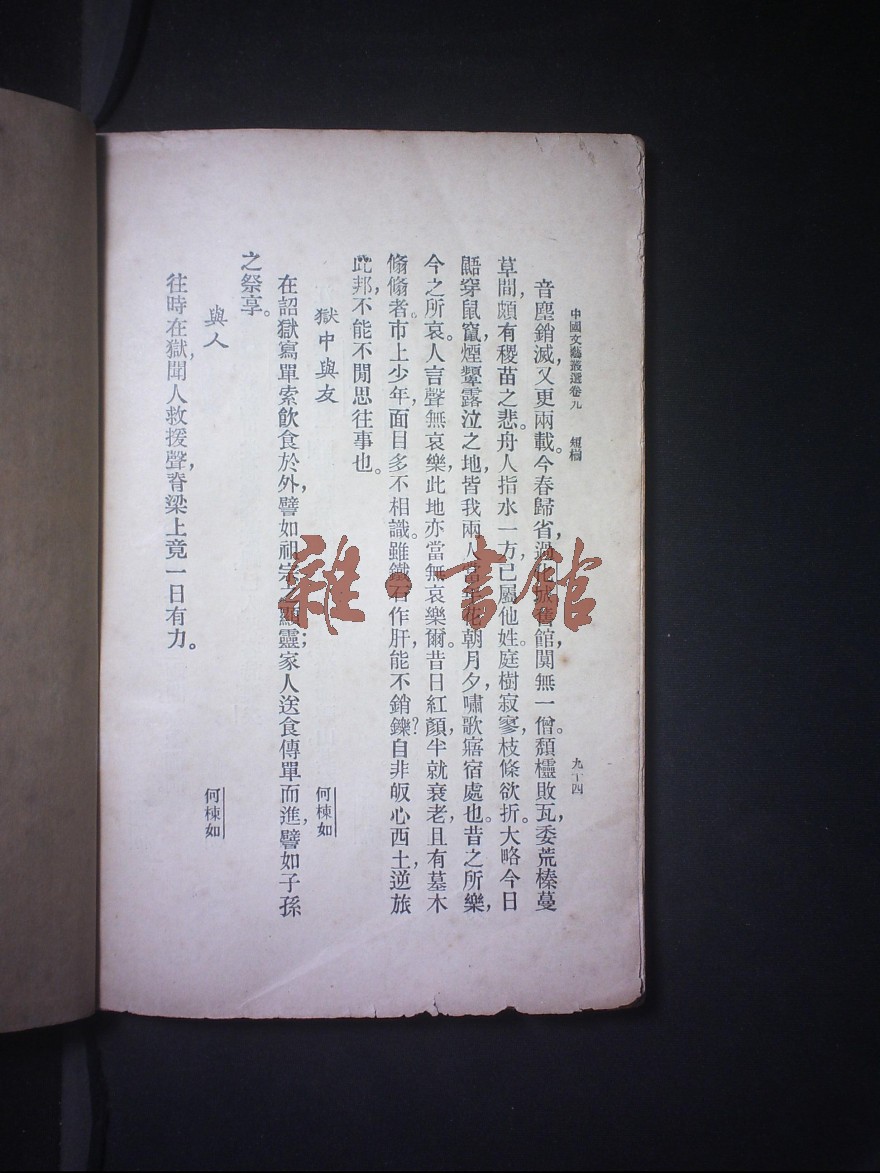 中國文藝叢選卷九 短檄 九十四
音塵銷滅，又更兩載。今春歸省，過舊館，闃無一僧。頹櫺敗瓦，委荒榛蔓
草間，頗有稷苗之悲。舟人指水一方，已屬他姓。庭樹寂寥，枝條欲折。大略今日
鼯穿鼠竄，煙顰露泣之地，皆我兩人當年花朝月夕，嘯歌寤宿處也。昔之所樂，
今之所哀。人言聲無哀樂，此地亦當無哀樂爾。昔日紅顏，半就衰老，且有墓木
翛翛者。市上少年，面目多不相識。雖鐵石作肝，能不銷鑠？自非皈心西土，逆旅
此邦，不能不閒思往事也。
獄中與友 何棟如
在詔獄寫單索飲食於外，譬如祖宗之顯靈；家人送食傳單而進，譬如子孫
之祭享。
與人 何棟如
往時在獄，聞人救援聲，脊梁上竟一日有力。
雜·書館